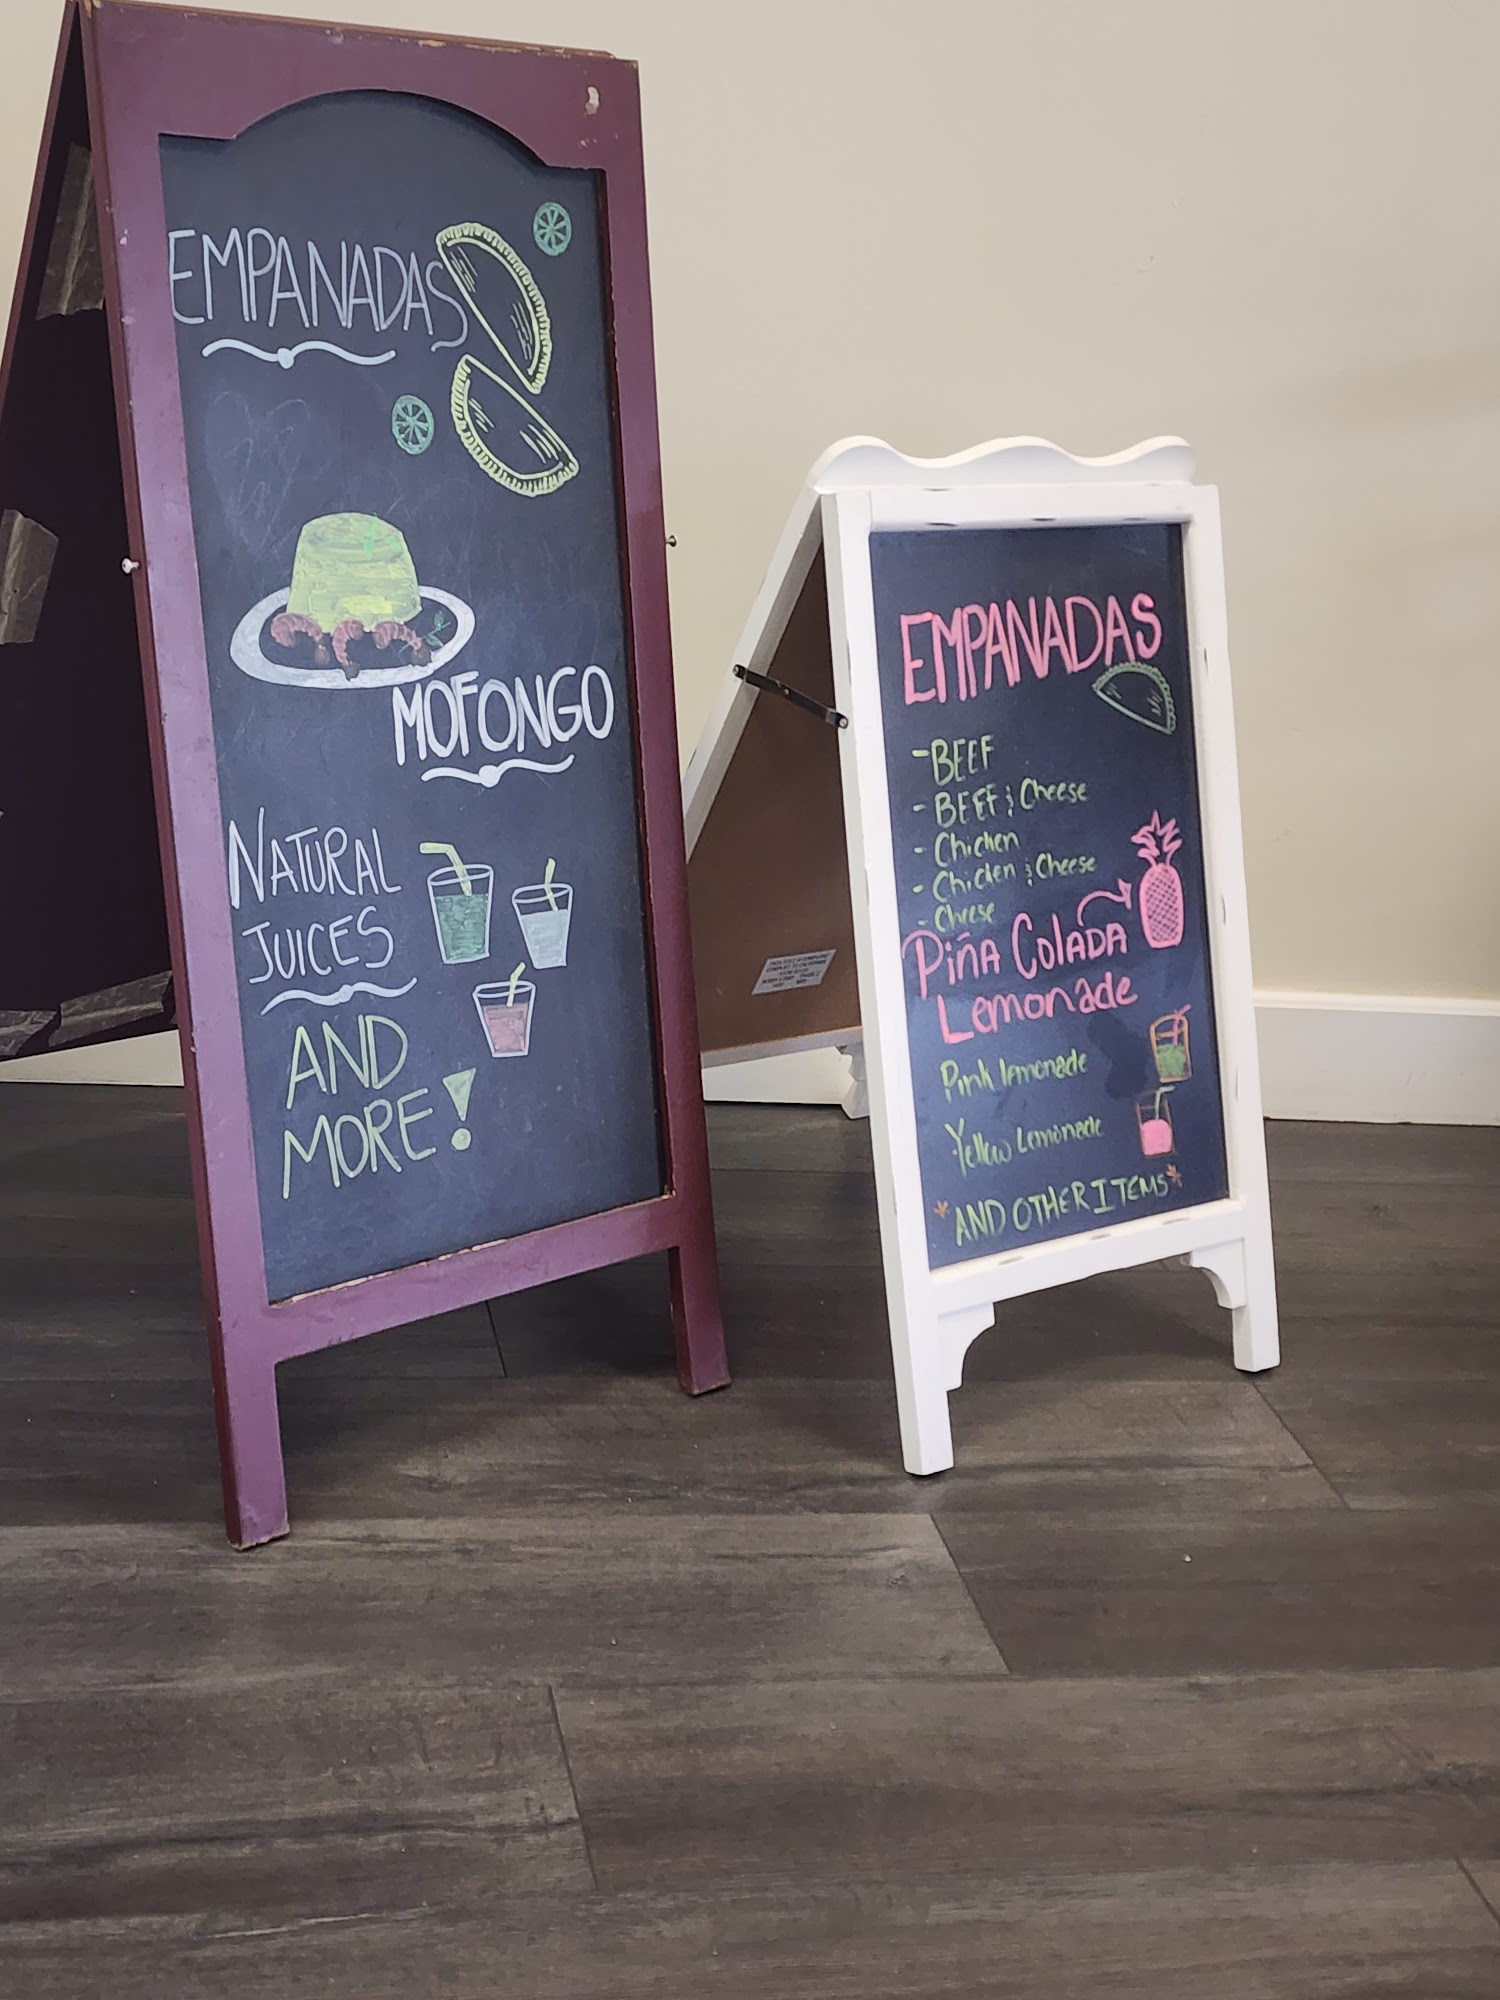 EMPANADAS
MOFONGO
NATURAL
JUICES
AND
MORE!
EMPANADAS
-BEEF
- BEEF & Cheese
- Chicken
- Chicken & Cheese
- Cheese
PIñA COLADA
Lemonade
Pink lemonade
Yellow Lemonade
*AND OTHER ITEMS*